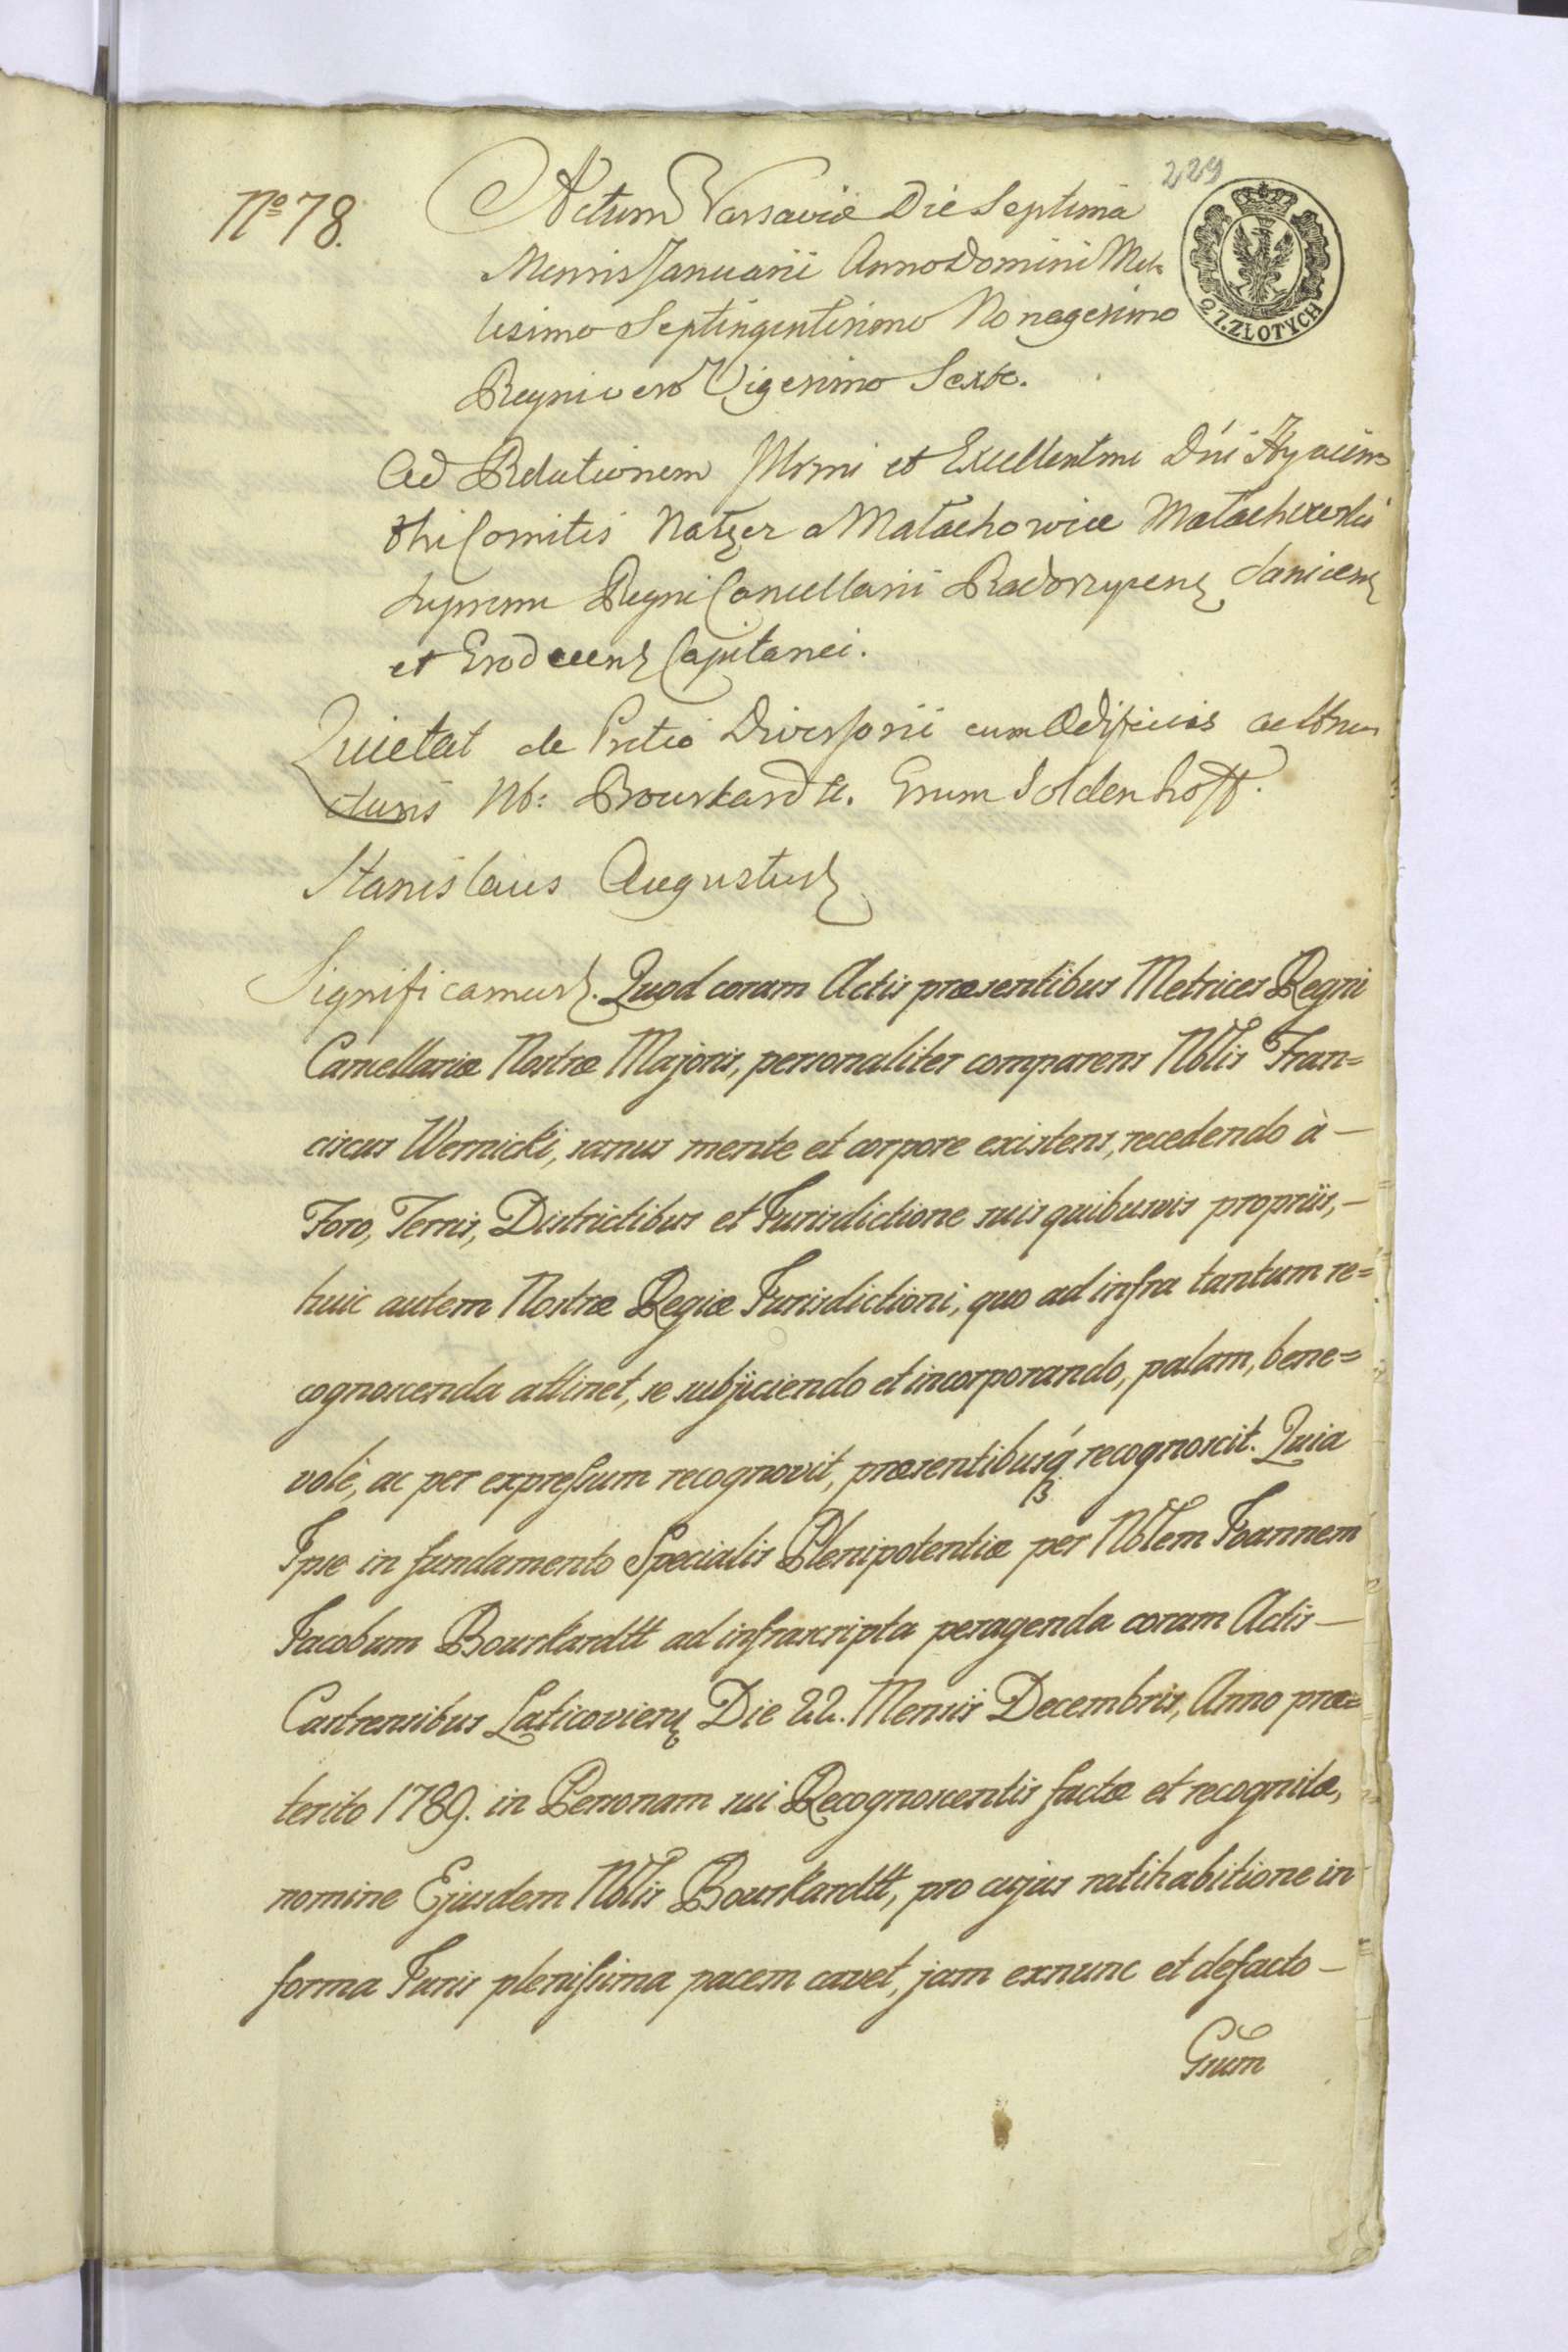 229
27. ZŁOTYCH
No 78.
Actum Varsaviæ Die Septima
Mensis Januarii Anno Domini Mil=
lesimo Septingentesimo Nonagesimo
Regni vero Vigesimo Sexto.
Ad Relationem Illrmi et Excellentmi Dni Hyacin=
thi Comitis Nałęcz a Małachowice Małachowski
Supremi Regni Cancellarii
et Capitanei.
Quietat de Pretio Diversorii cum Ædificiis ac Stru=
cturis Nb: Bourkardtt. Grum Soldenhoff.
Stanislaus Augustus
Significamus. Quod coram Actis præsentibus Metrices Regni
Cancellariæ Nostræ Majoris, personaliter comparens Nblis Fran=
ciscus Wernicki, sanus mente et corpore existens, recedendo à —
Foro, Terris, Districtibus et Jurisdictione suis quibusvis propriis, —
huic autem Nostræ Regiæ Jurisdictioni, quo ad infra tantum re=
cognoscenda attinet, se subjiciendo et incorporando, palam, bene=
volè, ac per expressum recognovit, præsentibusq́ recognoscit. Quia
Ipse in fundamento Specialis Plenipotentiæ per Nblem Joannem
Jacobum Bourkardtt ad infrascripta peragenda coram Actis —
Castrensibus Laticovien Die 22. Mensis Decembris, Anno præ=
terito 1789. in Personam sui Recognoscentis factæ et recognitæ,
nomine Ejusdem Nblis Bourkardtt, pro cujus ratihabitione in
forma Juris plenissima pacem cavet, jam exnunc et defacto —
Grum